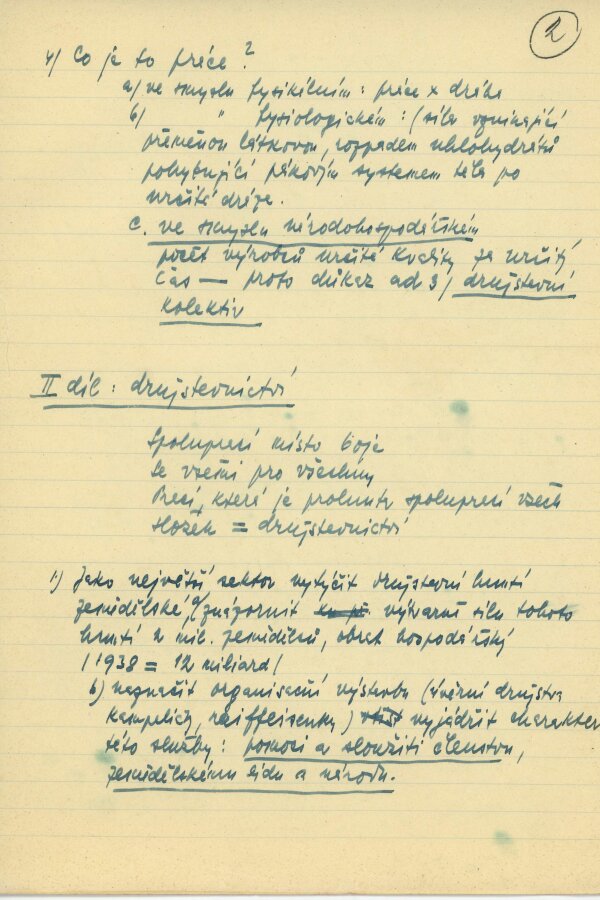 2
4) Co je to práce?
a) ve smyslu fysikálním: práce x dráha
b) " fysiologickém: (síla vznikající
přeměnou látkovou, rozpadem uhlohydrátů
pohybující pákovým systemem těla po
určité dráze.
c. ve smyslu národohospodářském
počet výrobců určité kvality za určitý
čas — proto důkaz ad 3) družstevní
kolektiv
II díl: družstevnictví
Spoluprací místo boje
se všemi pro všechny
Prací, které je prolnuta spoluprací všech
složek = družstevnictví
1) Jako největší sektor vytyčit družstevní hnutí
zemědělské, a) znázornit výtvarně sílu tohoto
hnutí n mil. zemědělců, obrat hospodářský
/1938 = 12 miliard/
b) naznačit organisační výstavbu (úvěrní družstva
kampeličky, raiffeisenky) vyjádřit charakter
této služby: pomoci a sloužiti členstvu,
zemědělskému lidu a národu.